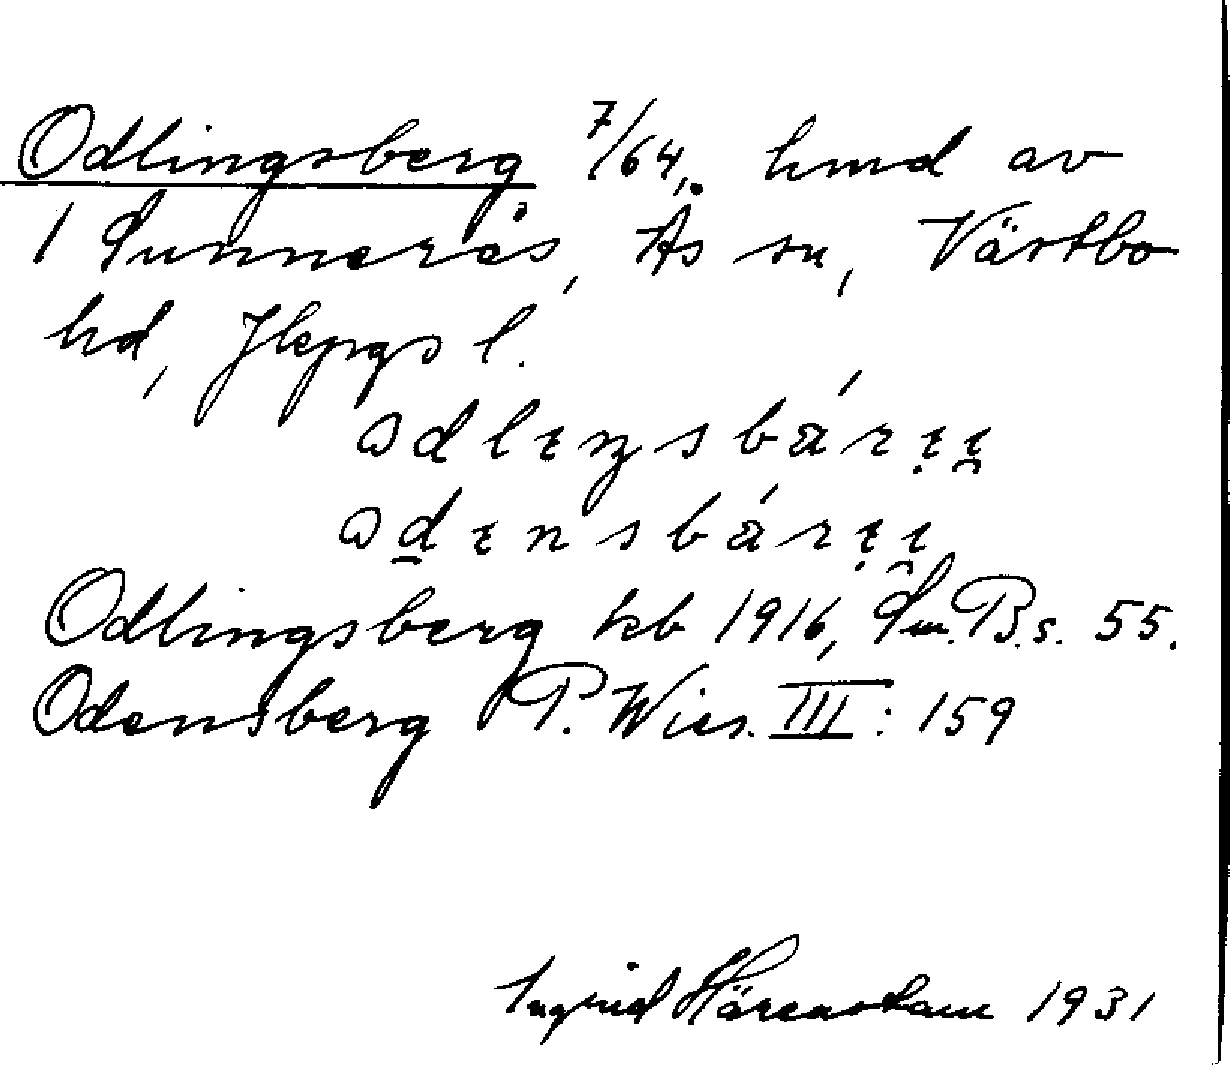 Odlingsberg 7/64, hmd av
1 Sunnerås, Ås sn, Västbo
hd, Jkpgs l.
Odlingsberg kb 1916, Sm. B. s. 55.
Odensberg P. Wies. III: 159
Ingrid Härenstam 1931